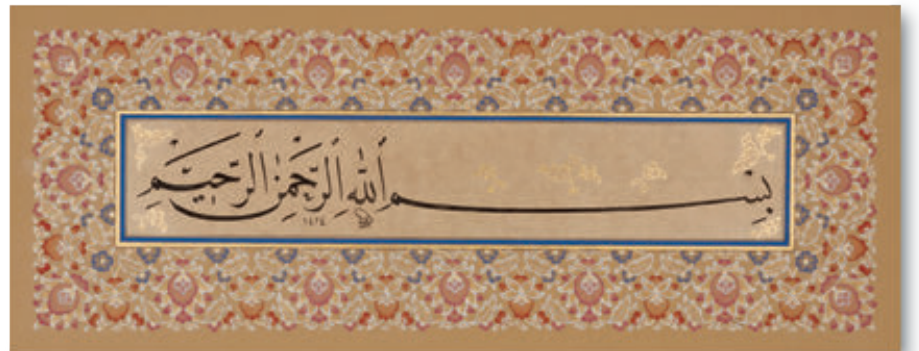 بِسْمِ اللهِ الرَّحْمٰنِ الرَّحِيمِ
١٤٢٤